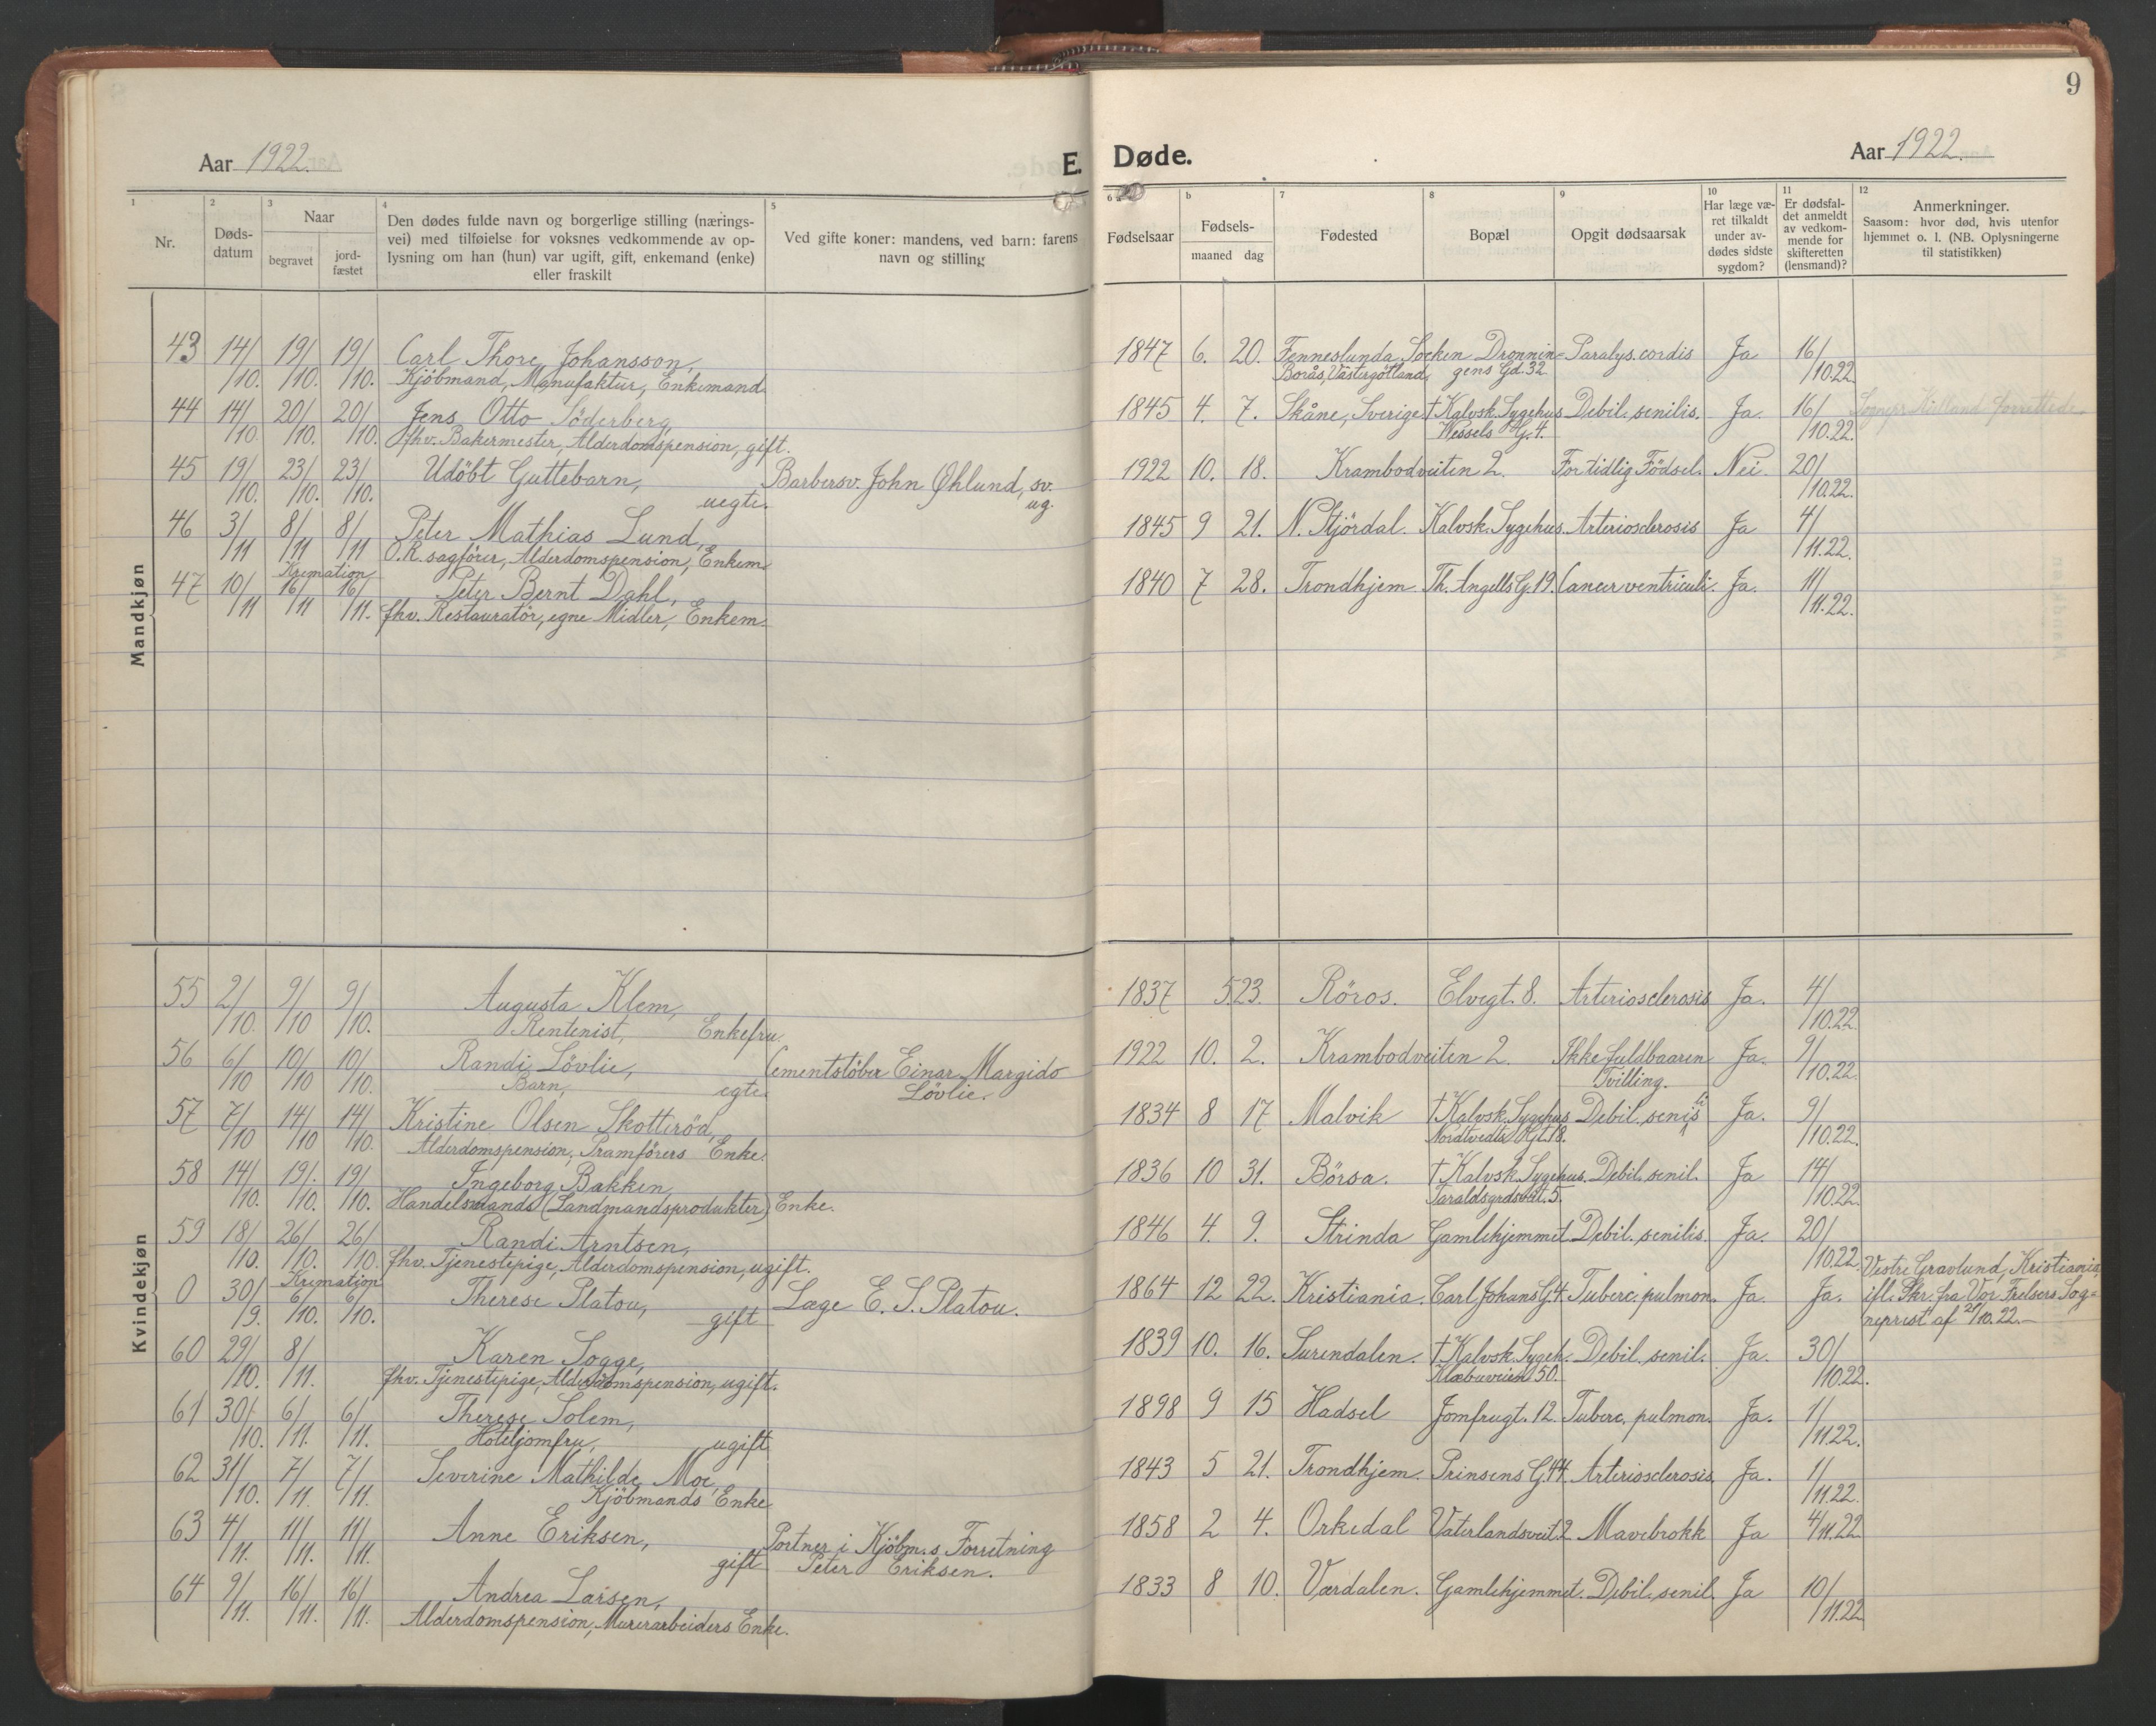 9
Aar 1922. E. Døde. Aar 1922.
1 2 3 4 5 6 b 7 8 9 10 11 12
Nr.
Døds-
datum
Naar
begravet
jord-
fæstet
Den dødes fulde navn og borgerlige stilling (nærings-
vei) med tilføielse for voksnes vedkommende av op-
lysning om han (hun) var ugift, gift, enkemand (enke)
eller fraskilt
Ved gifte koner: mandens, ved barn: farens
navn og stilling
Fødselsaar
Fødsels-
maaned dag
Fødested
Bopæl
Opgit dødsaarsak
Har læge væ-
ret tilkaldt
under av-
dødes sidste
sygdom?
Er dødsfal-
det anmeldt
av vedkom-
mende for
skifteretten
(lensmand)?
Anmerkninger.
Saasom: hvor død, hvis utenfor
hjemmet o. l. (NB. Oplysningerne
til statistikken)
Mandkjøn
43 14/ 19/ 19/ Carl Thore Johansson, 1847 6. 20. Fenneslunda Socken Dronnin- Paralys. cordis Ja 16/
/10. /10. /10. Kjöbmand, Manufaktur, Enkemand Borås, Västergötland, gens Gd. 32 /10.22
44 14/ 20/ 20/ Jens Otto Söderberg, 1845 4. 7. Skåne, Sverige † Kalvsk. Sygehus Debil. senilis. Ja. 16/ Sognepr. Killand forrettede.
/10. /10. /10. fhv. Bakermester, Alderdomspension, gift. Wessels G. 4. /10.22.
45 19/ 23/ 23/ Udöbt Guttebarn, Barbersv. John Øhlund, sv. 1922 10. 18. Krambodveiten 2. For tidlig Födsel. Nei. 20/
/10. /10. /10. uegte. ug. /10.22.
46 3/ 8/ 8/ Peter Mathias Lund, 1845 9 21. N. Stjördal. Kalvsk. Sygehus. Arteriosclerosis Ja 4/
/11 /11 /11 O.R. sagförer, Alderdomspension, Enkem. /11.22.
Kremation
47 10/ 16/ 16/ Peter Bernt Dahl, 1840 7 28. Trondhjem Th. Angells G. 19. Cancer ventriculi. Ja. 11/
/11 /11 /11. fhv. Restauratör, egne Midler, Enkem. /11.22.
Kvindekjøn
55 2/ 9/ 9/ Augusta Klem, 1837 5 23. Röros. Elvegt. 8. Arteriosclerosis Ja. 4/
/10. /10 /10. Rentenist, Enkefru. /10.22.
56 6/ 10/ 10/ Randi Lövlie, Cementstöber Einar Margido 1922 10. 2. Krambodveiten 2. Ikke fuldbaaren Ja. 9/
/10 /10 /10. Barn, egte. Lövlie. Tvilling. /10.22.
57 7/ 14/ 14/ Kristine Olsen Skotteröd, 1834 8 17 Malvik † Kalvsk. Sygehus Debil. senilis Ja. 9/
/10 /10 /10. Alderdomspension, Pramförers Enke. Nordtvedts Gt. 18. /10.22.
58 14/ 19/. 19/ Ingeborg Bakken 1836 10 31. Börsa. † Kalvsk. Sygehus. Debil. senil. Ja 14/
/10. /10. /10. Handelsmands (Landmandsprodukter) Enke. Taraldsgrdsveit. 5. /10.22
59 18/ 26/ 26/ Randi Arntsen, 1846 4. 9. Strinda Gamlehjemmet Debil. senilis. Ja. 20/
/10. /10. /10. fhv. Tjenestepige, Alderdomspension, ugift. /10.22 Vestre Gravlund, Kristiania,
Kremation
0 30/ 6/ 6/ Therese Platou, Læge E. S. Platou. 1864 12 22. Kristiania. Carl Johans G. 4. Tuberc. pulmon. Ja. Ja. ifl. Skr. fra Vor Frelsers Sog-
/9. /10. /10. gift neprest af 21/10.22.
60 29/ 8/ Karen Sogge, 1839 10. 16. Surendalen. † Kalvsk. Sygeh. Debil. senil. Ja. 30/
/10. /11. fhv. Tjenestepige, Alderdomspension, ugift. Klæbuveien 50. /10.22.
61 30/ 6/ 6/ Therese Solem, 1898 9 15 Hadsel Jomfrugt. 12. Tuberc. pulmon. Ja. 1/
/10. /11. /11. Hoteljomfru, ugift /11.22.
62 31/ 7/ 7/ Severine Mathilde Moe, 1843 5 21. Trondhjem. Prinsens G. 44 Arteriosclerosis Ja. 1/
/10. /11. /11. Kjöbmands Enke /11.22.
63 4/ 11/ 11/ Anne Eriksen, Portner i Kjöbm.s Forretning 1858 2 4. Orkedal Vaterlandsveit. 2 Mavebrokk Ja 4/11.22
/11. /11. /11. gift Peter Eriksen.
64 9/ 16/ 16/ Andrea Larsen, 1833 8 10. Værdalen. Gamlehjemmet. Debil. senil. Ja 10/
/11. /11. /11. Alderdomspension, Murerarbeiders Enke. /11.22